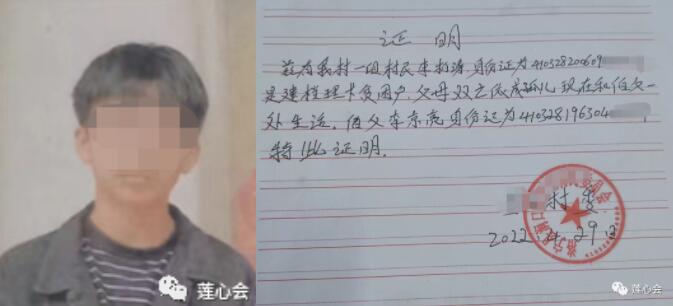 证 明
兹有我村一组村民李 身份证为41032820060​9
是建档理卡贫困户,父母双亡 成孤儿 现在和伯父一
处生活,伯父李东亮身份证为410328196304
特此证明.
村委
2022.4.29日
委员会
莲心会
莲心会